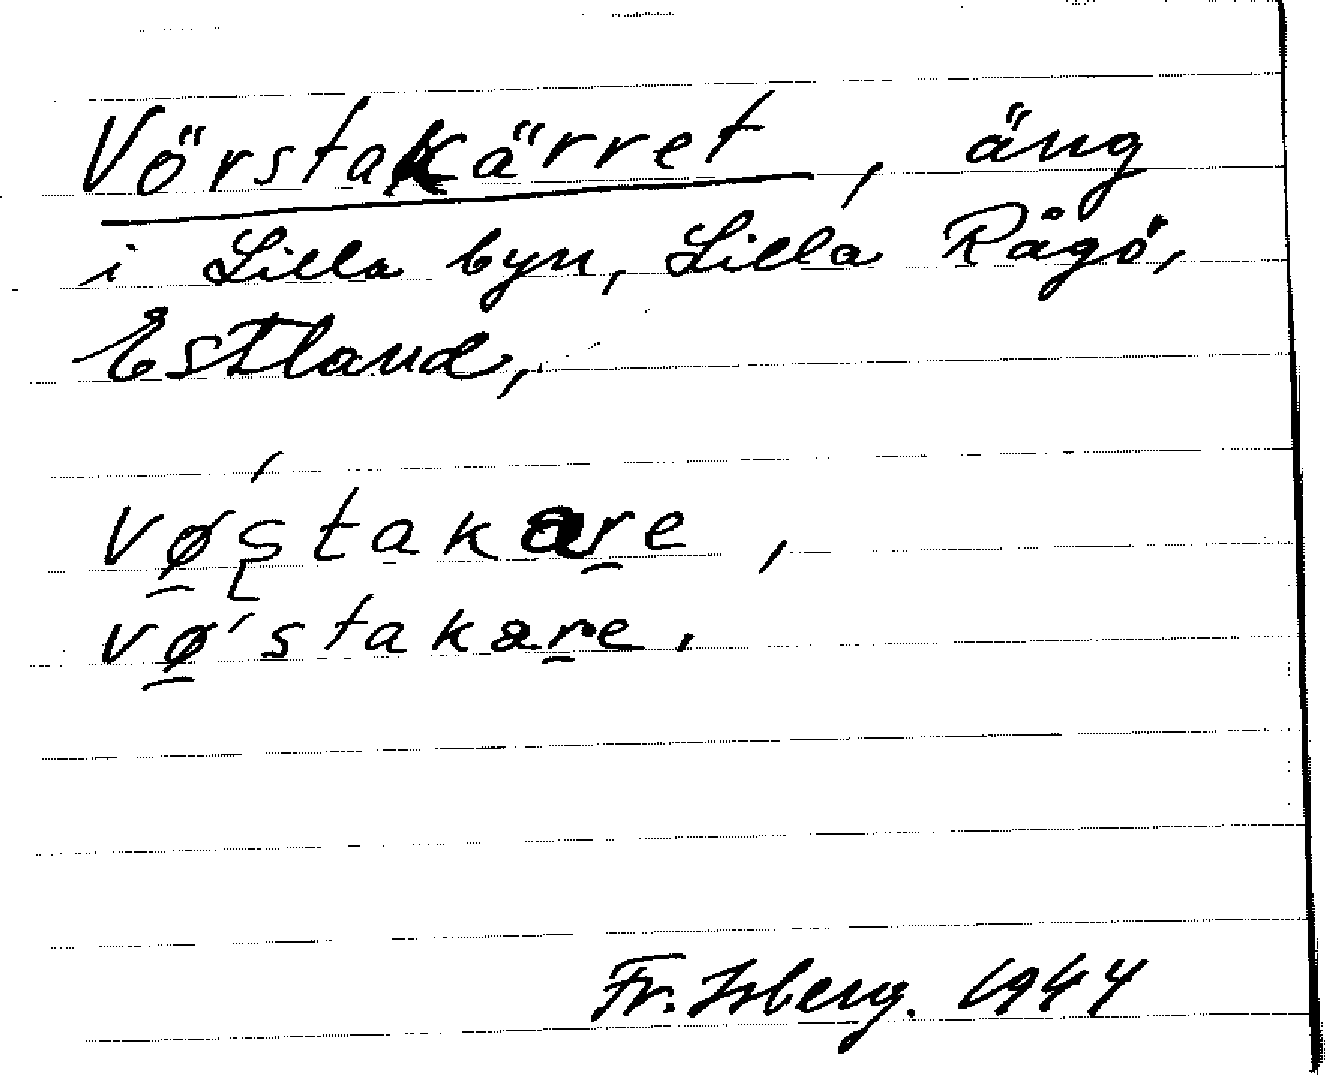 Vörstakärret, äng
i Lilla byn, Lilla Rågö,
Estland,
vø̱ʂ́takare̱,
vǿ̱stakare.
Fr. Isberg. 1944